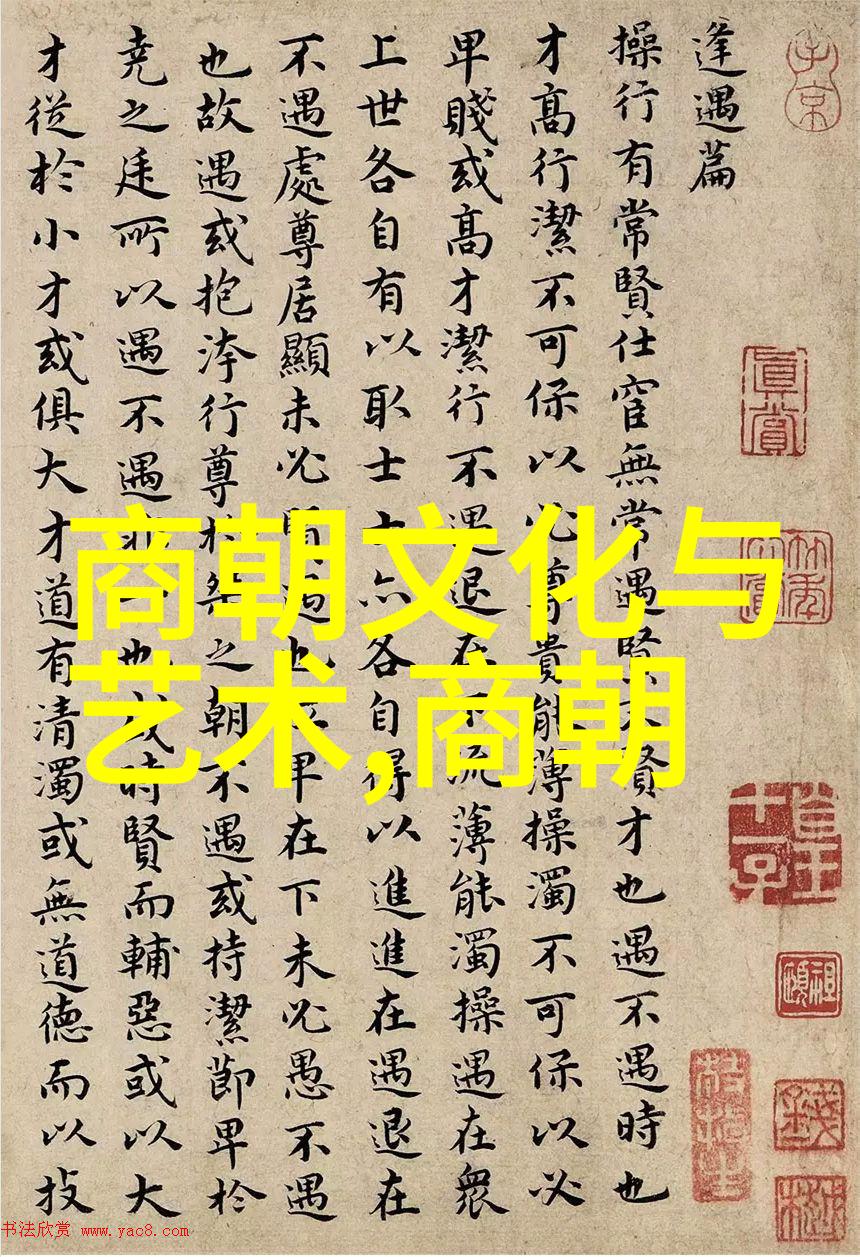 逢遇篇
操行有常賢仕宦無常遇賢不賢才也遇不遇時也
才高行潔不可保以必尊貴能薄操濁不可保以必
卑賤或高才潔行不遇退在下流薄能濁操遇在衆
上世各自有以取士士亦各自得以進進在遇退在
不遇處尊居顯未必賢遇也位卑在下未必愚不遇
也故遇或抱洿行尊於桀之朝不遇或持潔節卑於
堯之廷所以遇不遇非一也或時賢而輔惡或以大
才從於小才或俱大才道有清濁或無道德而以技
商朝文化与
艺术,商朝
子京
真賞
书法欣赏 www.yac8.com